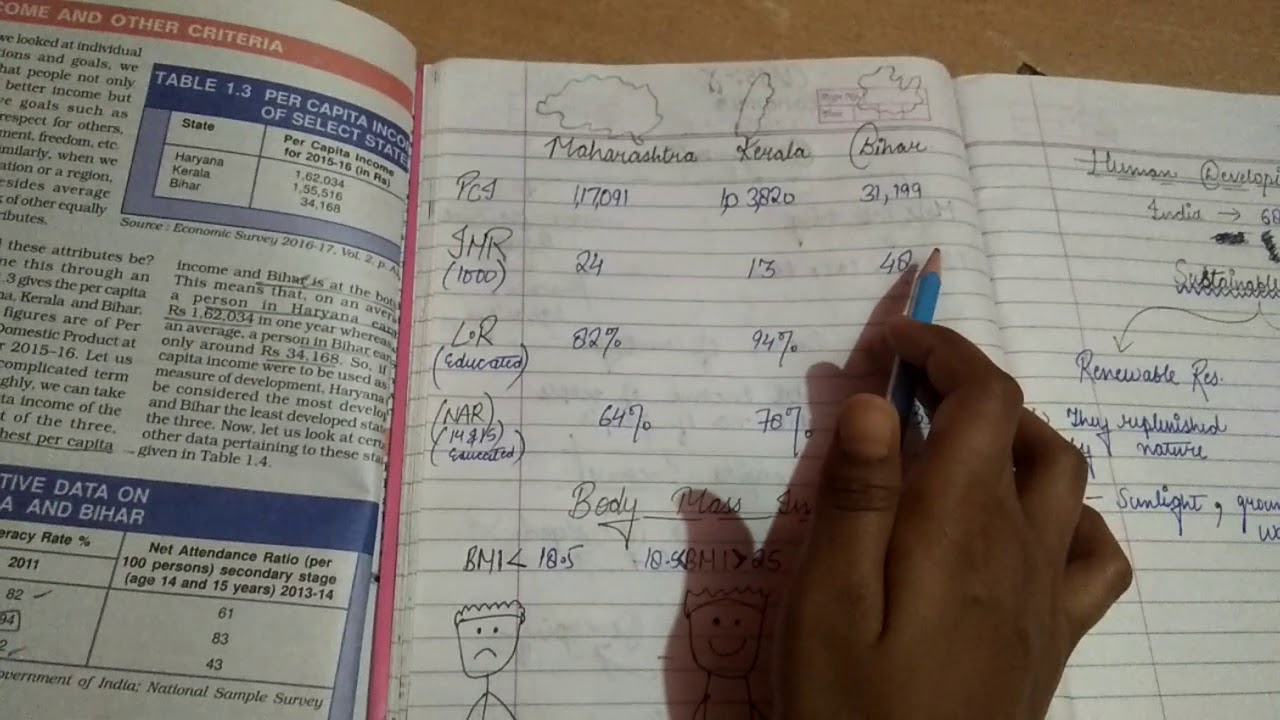 COME AND OTHER CRITERIA
we looked at individual
ions and goals, we
hat people not only
better income but
ve goals such as
respect for others,
ment, freedom, etc.
imilarly, when we
ation or a region,
esides average
of other equally
ributes.
TABLE 1.3 PER CAPITA INCO
OF SELECT STATE
State Per Capita Income
for 2015-16 (in Rs)
Haryana 1,62,034
Kerala 1,55,516
Bihar 34,168
Source: Economic Survey 2016-17, Vol. 2, p. A
these attributes be?
ne this through an
.3 gives the per capita
na, Kerala and Bihar.
figures are of Per
Domestic Product at
r 2015-16. Let us
complicated term
ghly, we can take
ta income of the
t of the three,
hest per capita
income and Bihar is at the bot
This means that, on an aver
a person in Haryana earn
Rs 1,62,034 in one year whereas
an average, a person in Bihar earn
only around Rs 34,168. So, if
capita income were to be used as
measure of development, Haryana
be considered the most develop
and Bihar the least developed stat
the three. Now, let us look at cert
other data pertaining to these sta
given in Table 1.4.
TIVE DATA ON
A AND BIHAR
eracy Rate %
2011
Net Attendance Ratio (per
100 persons) secondary stage
(age 14 and 15 years) 2013-14
82 61
94 83
2 43
overnment of India; National Sample Survey
Maharashtra Kerala Bihar
PCI 1,17,091 1,03,820 31,199
IMR
(1000) 24 13 48
L.R 82% 94%
(Educated)
(NAR) 64% 78%
(14&15)
Educated)
Body Mass In
BMI < 18.5 18.5<BMI>25
Human Develop
India → 68
Sustainable
Renewable Res.
They replenished
nature
- Sunlight, groun
wa